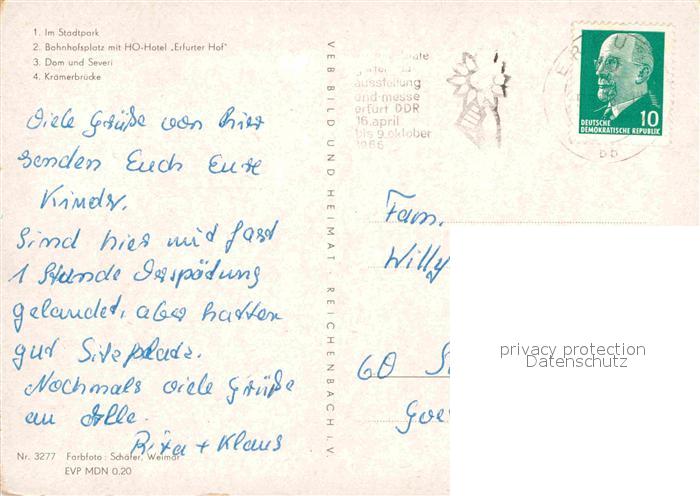 1. Im Stadtpark
2. Bahnhofsplatz mit HO-Hotel „Erfurter Hof"
3. Dom und Severi
4. Krämerbrücke
Viele Grüße von hier
senden Euch Eure
Kinder.
Sind hier mit fast
1 Stunde Verspätung
gelandet, aber hatten
gut Sitzplatz.
Nochmals viele Grüße
an Alle.
Rita + Klaus
Nr. 3277 Farbfoto: Schäfer, Weimar
EVP MDN 0.20
VEB BILD UND HEIMAT · REICHENBACH i. V.
ausstellung
und-messe
erfurt DDR
16.april
bis 9.oktober
1966
DEUTSCHE
DEMOKRATISCHE REPUBLIK
10
bb
Fam.
Willy
60
privacy protection
Datenschutz